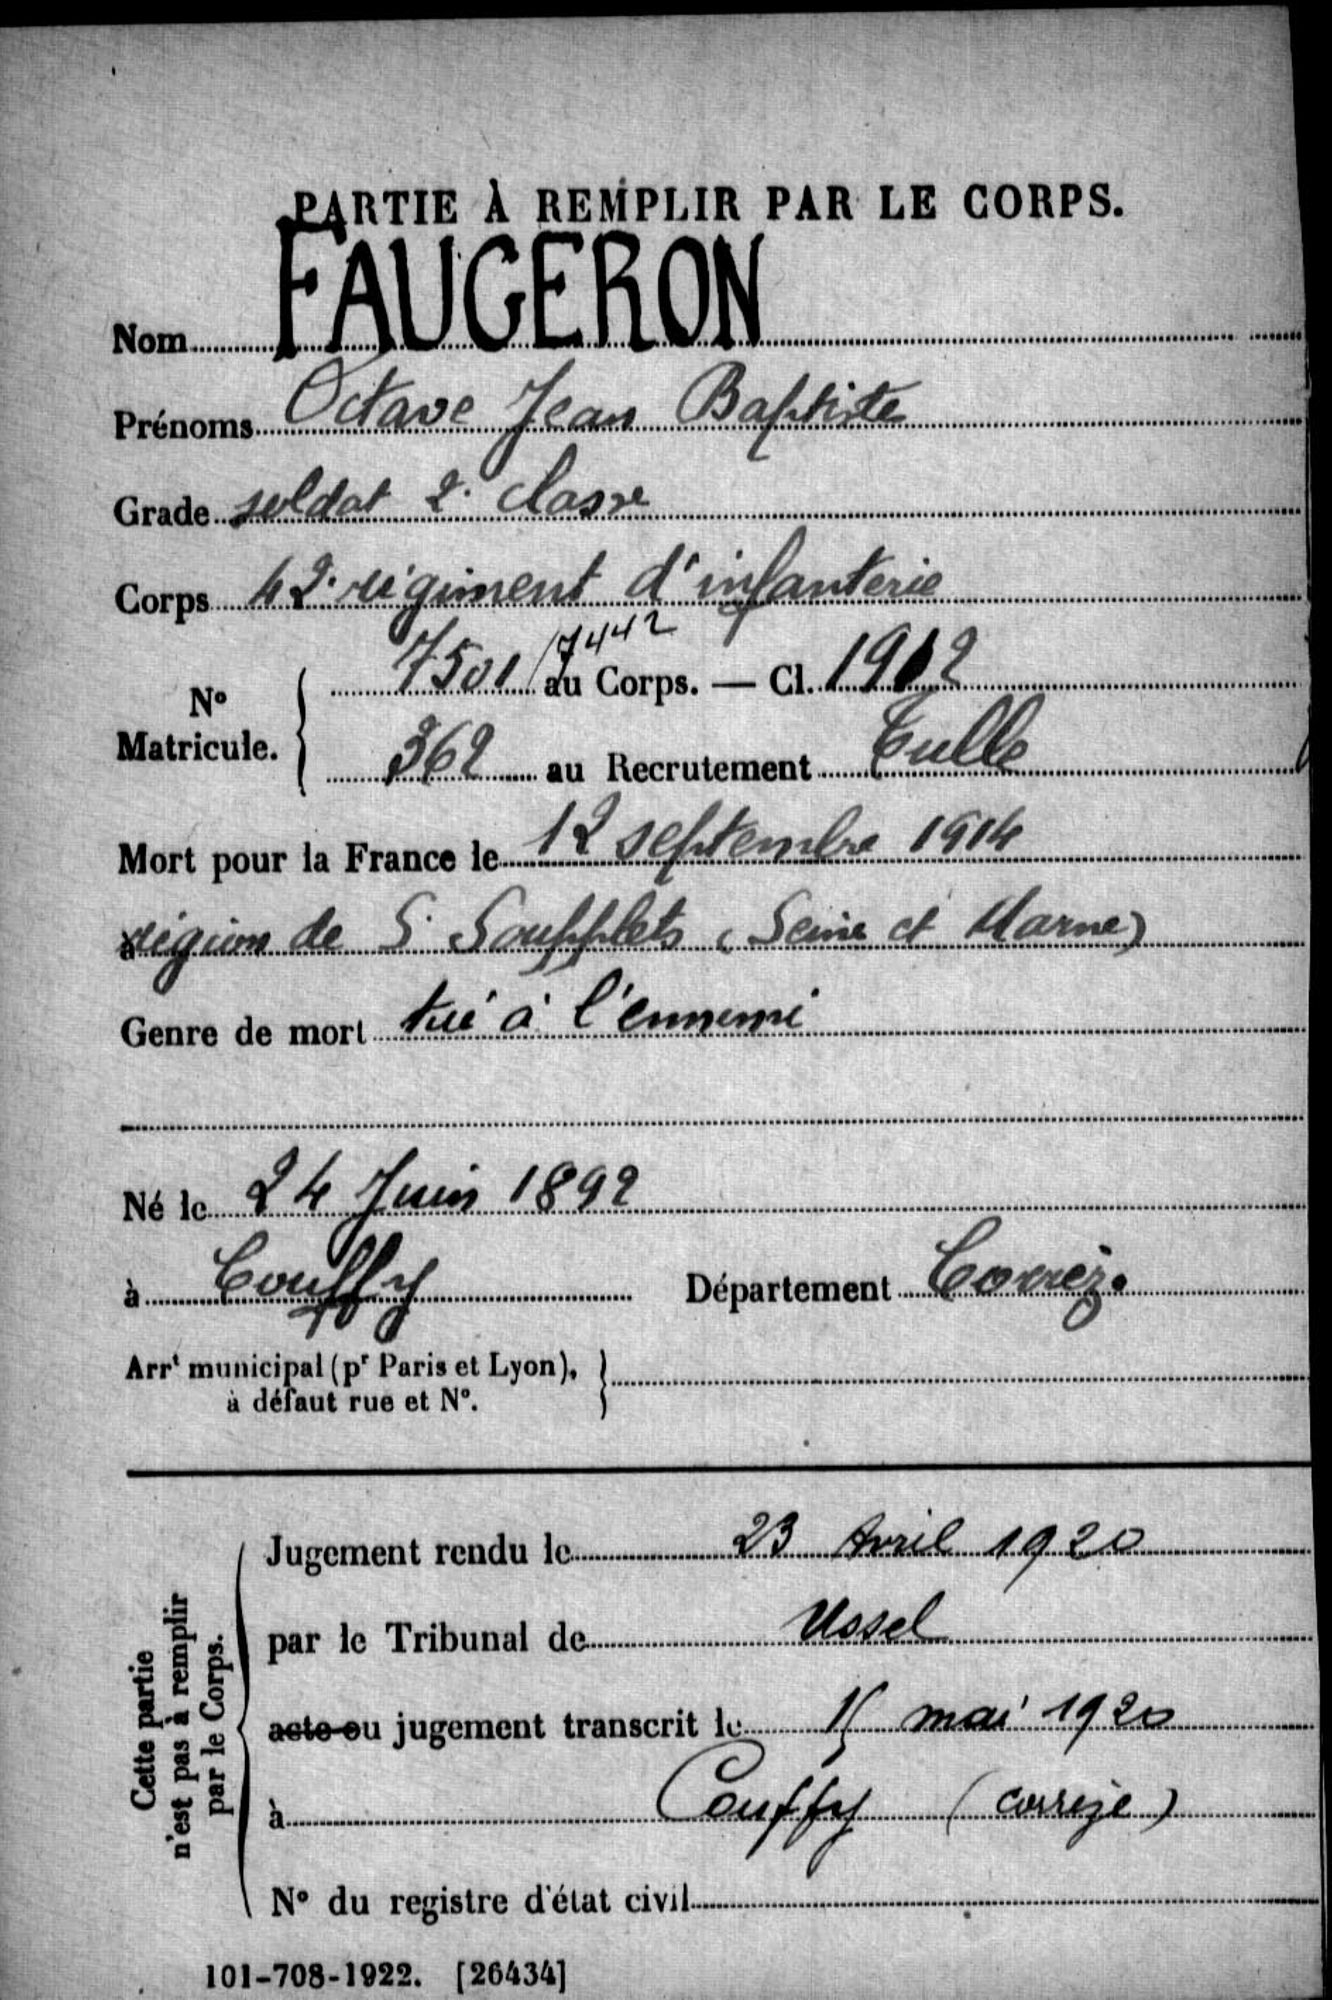 PARTIE À REMPLIR PAR LE CORPS.
Nom FAUGERON
Prénoms Octave Jean Baptiste
Grade soldat 2e classe
Corps 42e régiment d'infanterie
N° Matricule. 7501 / 7442 au Corps. — Cl. 1912
362 au Recrutement Tulle
Mort pour la France le 12 septembre 1914
à région de St Soupplets (Seine et Marne)
Genre de mort tué à l'ennemi
Né le 24 Juin 1892
à Couffy Département Corrèze
Arrt municipal (pr Paris et Lyon),
à défaut rue et N°.
Cette partie
n'est pas à remplir
par le Corps.
Jugement rendu le 23 Avril 1920
par le Tribunal de Ussel
acte ou jugement transcrit le 15 mai 1920
à Couffy (corrèze)
N° du registre d'état civil
101-708-1922. [26434]